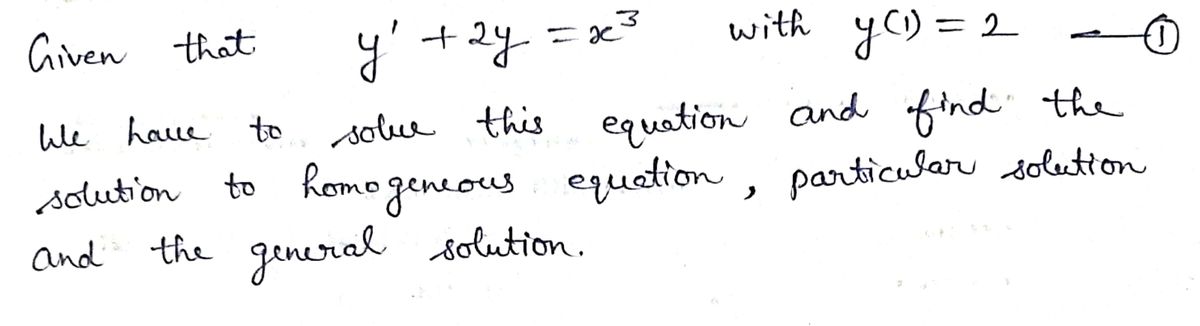 Given that y' + 2y = x³ with y(1) = 2 —①
We have to solve this equation and find the
solution to homogeneous equation, particular solution
and the general solution.